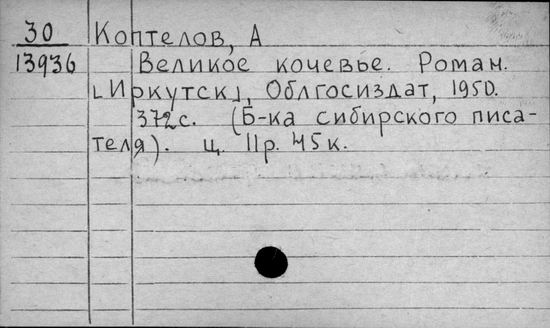 30 Коптелов, А
13936 Великое кочевье. Роман.
[Иркутск], Облгосиздат, 1950.
372с. (Б-ка сибирского писа-
теля). ц. 11р. 45к.